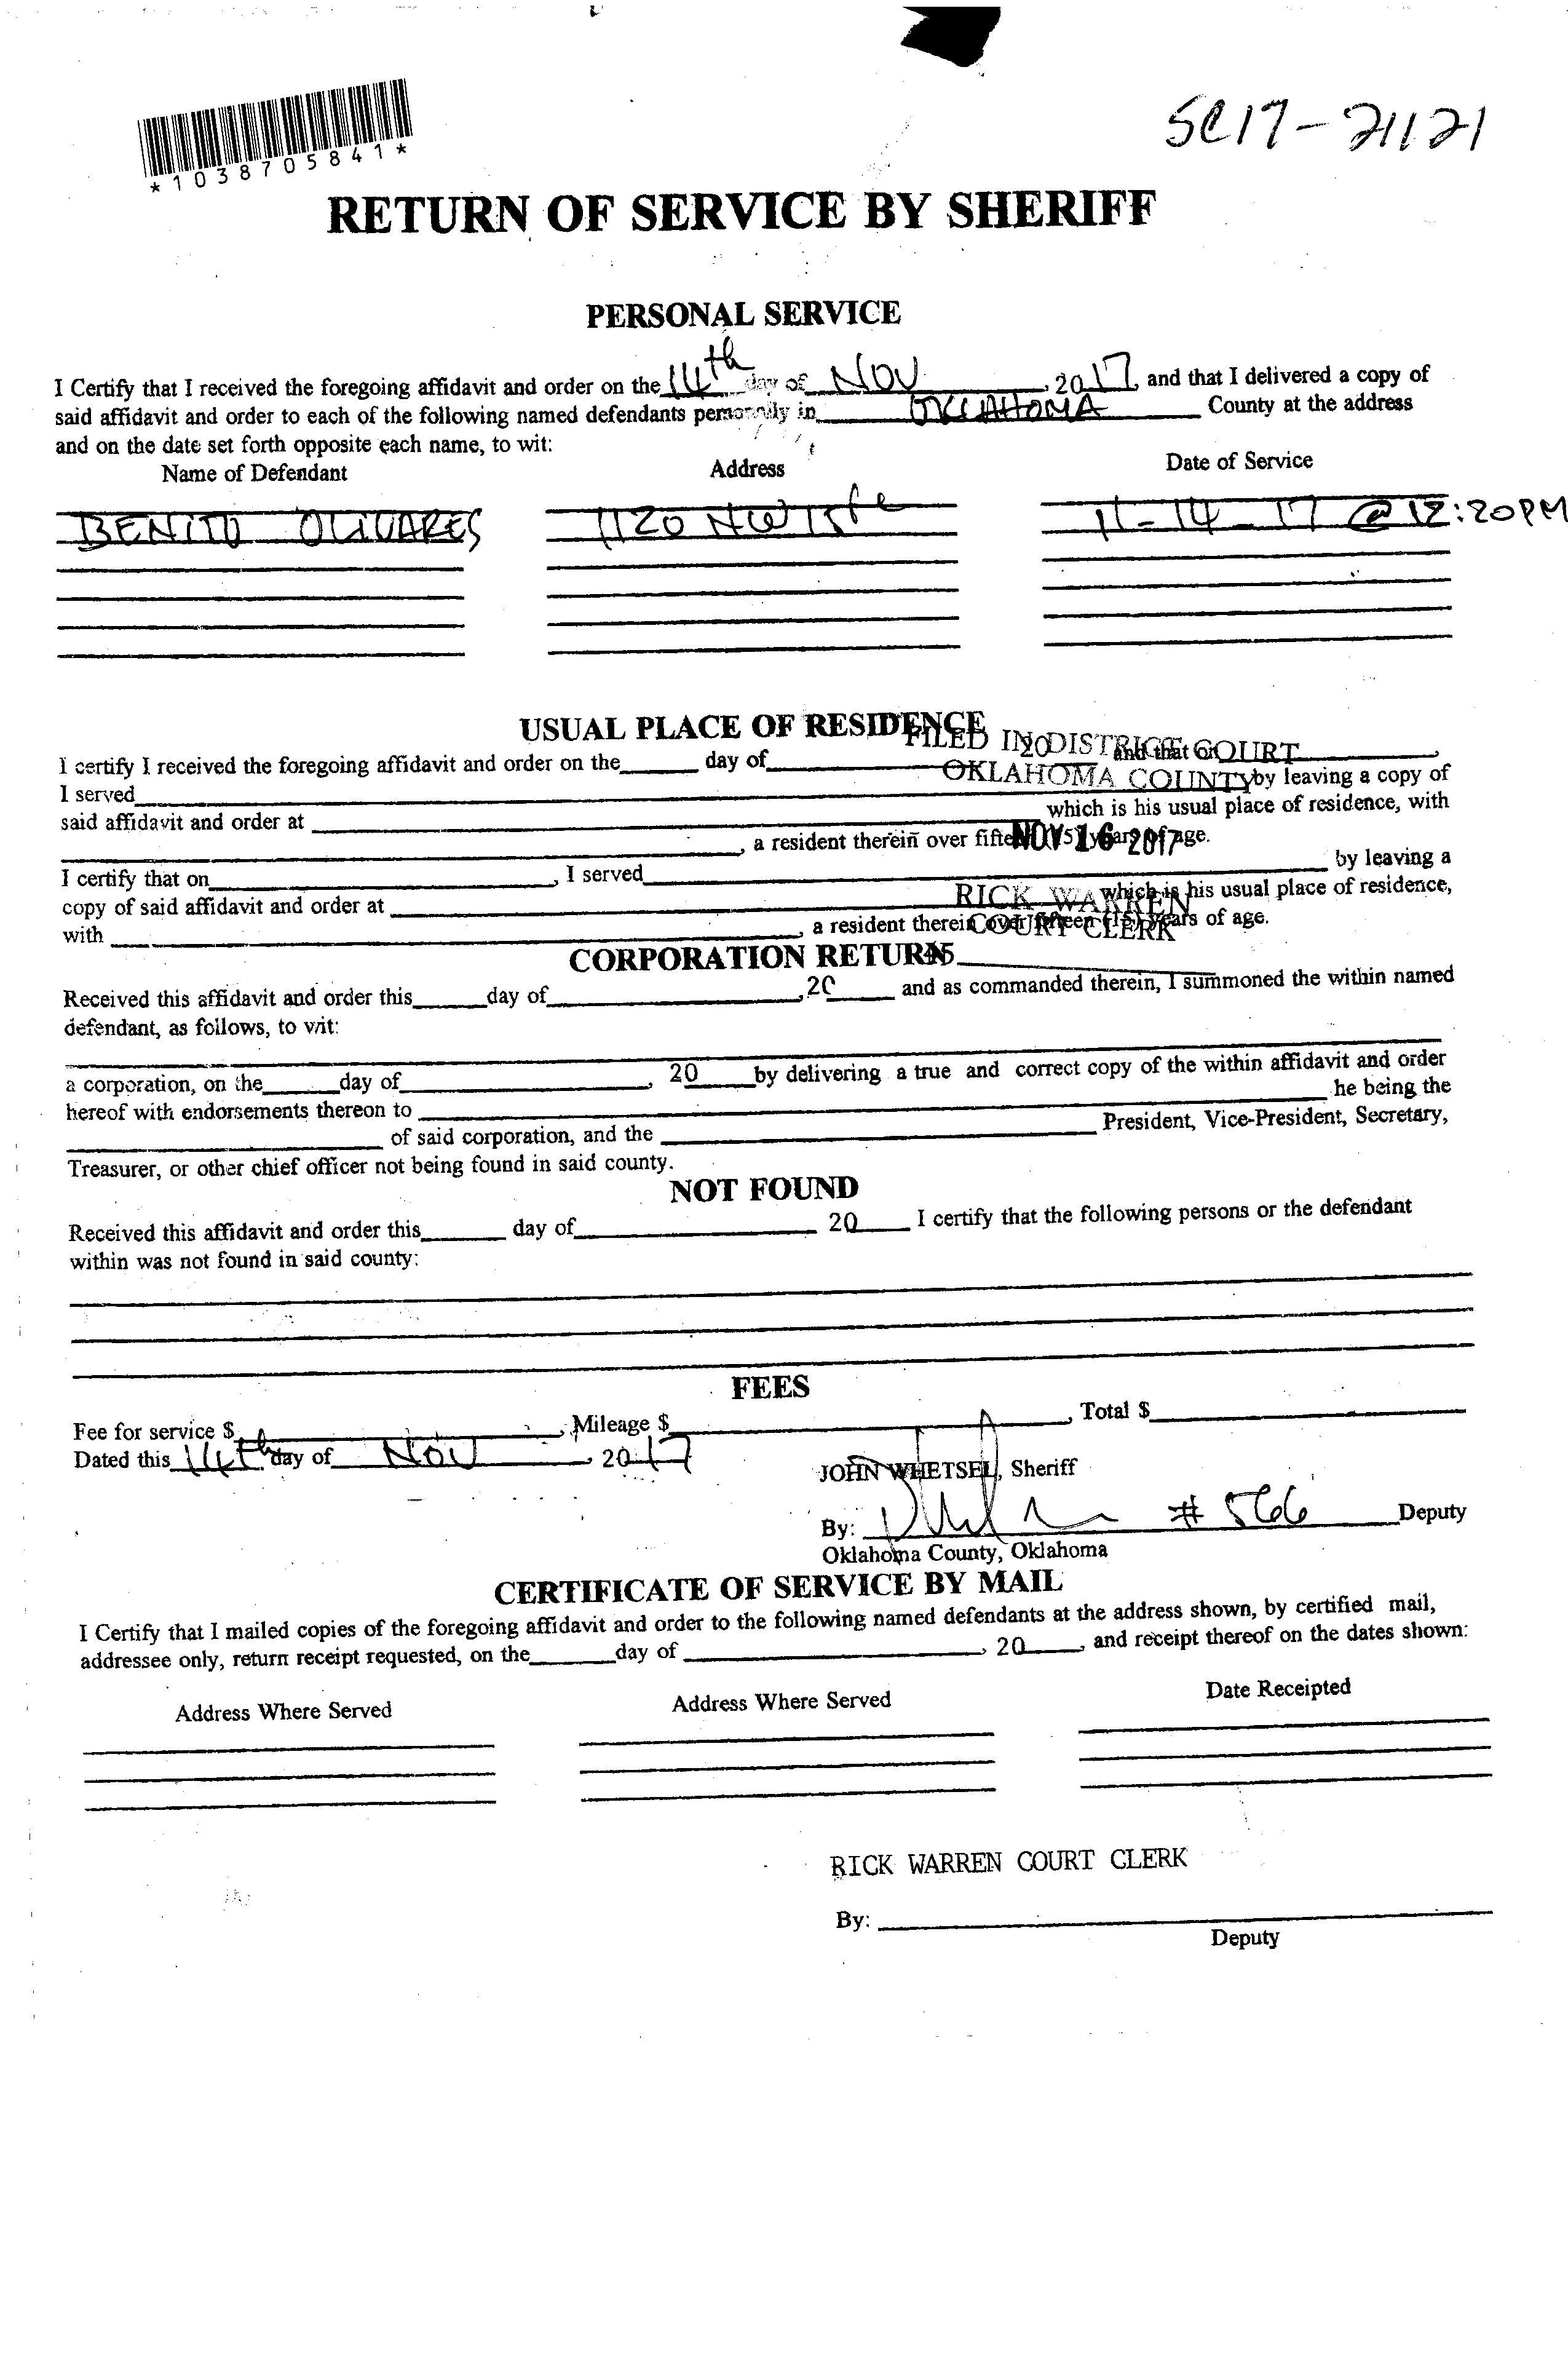 SC17-21121
*1038705841*
RETURN OF SERVICE BY SHERIFF
PERSONAL SERVICE
I Certify that I received the foregoing affidavit and order on the 14th day of NOV, 2017, and that I delivered a copy of
said affidavit and order to each of the following named defendants personally in OKLAHOMA County at the address
and on the date set forth opposite each name, to wit:
Name of Defendant Address Date of Service
BENITO OLIVARES 1120 NW 11-14-17 @ 12:20PM
USUAL PLACE OF RESIDENCE
FILED IN DISTRICT COURT
OKLAHOMA COUNTY
NOV 16 2017
RICK WARREN
COURT CLERK
45
I certify I received the foregoing affidavit and order on the day of 20 and that on ,
I served by leaving a copy of
said affidavit and order at which is his usual place of residence, with
, a resident therein over fifteen (15) years of age.
I certify that on , I served by leaving a
copy of said affidavit and order at which is his usual place of residence,
with , a resident therein over fifteen (15) years of age.
CORPORATION RETURN
Received this affidavit and order this day of ,20 and as commanded therein, I summoned the within named
defendant, as follows, to wit:
a corporation, on the day of , 20 by delivering a true and correct copy of the within affidavit and order
hereof with endorsements thereon to he being the
of said corporation, and the President, Vice-President, Secretary,
Treasurer, or other chief officer not being found in said county.
NOT FOUND
Received this affidavit and order this day of 20 I certify that the following persons or the defendant
within was not found in said county:
FEES
Fee for service $ , Mileage $ , Total $
Dated this 14th day of NOV , 2017
JOHN WHETSEL, Sheriff
By: # 566 Deputy
Oklahoma County, Oklahoma
CERTIFICATE OF SERVICE BY MAIL
I Certify that I mailed copies of the foregoing affidavit and order to the following named defendants at the address shown, by certified mail,
addressee only, return receipt requested, on the day of , 20 , and receipt thereof on the dates shown:
Address Where Served Address Where Served Date Receipted
RICK WARREN COURT CLERK
By:
Deputy